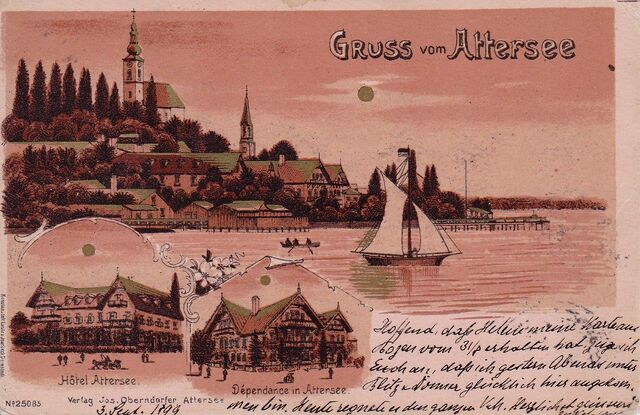 GRUSS VOM Attersee
Hôtel Attersee.
Dépendance in Attersee.
Nº25085
Verlag Jos. Oberndorfer Attersee
3. Sept. 1899
Hoffend, daß Helene meine Karten
vom 31/8 erhalten hat,
daß ich gestern Abends
Blitz u. Donner glücklich hier angekom-
men bin. Heute regnete es den ganzen Herzlichst grüssend